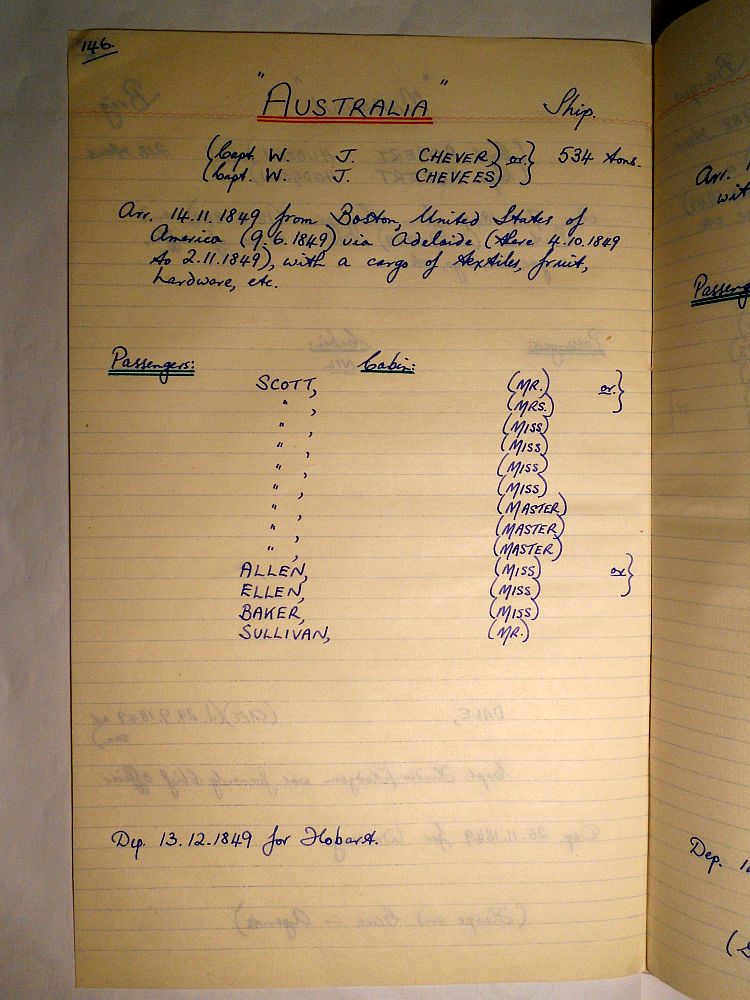 146.
"AUSTRALIA" Ship.
(Capt. W. J. CHEVER) or } 534 tons.
(Capt. W. J. CHEVEES) }
Arr. 14.11.1849 from Boston, United States of
America (9.6.1849) via Adelaide (there 4.10.1849
to 2.11.1849), with a cargo of textiles, fruit,
hardware, etc.
Passengers: Cabin:
SCOTT, (MR.) or }
" , (MRS.) }
" , (MISS)
" , (MISS)
" , (MISS)
" , (MISS)
" , (MASTER)
" , (MASTER)
" , (MASTER)
ALLEN, (MISS) or }
ELLEN, (MISS) }
BAKER, (MISS)
SULLIVAN, (MR.)
Dep. 13.12.1849 for Hobart.
Arr. 1
wit
Passeng
Dep. 1